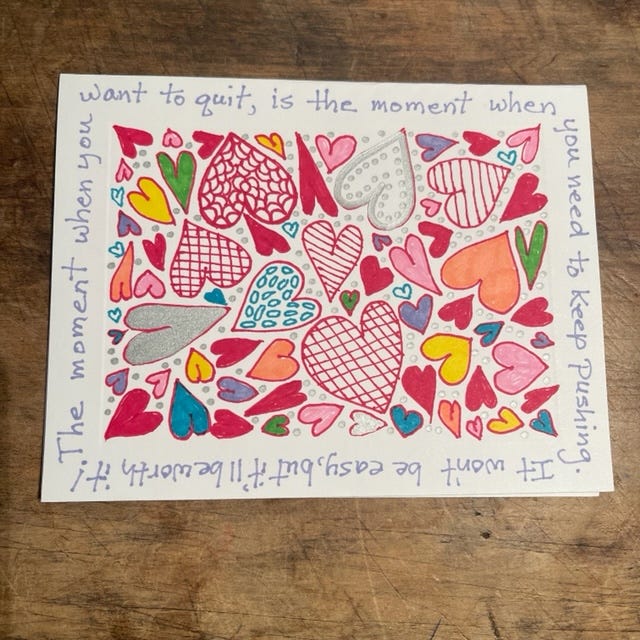 The moment when you
want to quit, is the moment when
you need to keep pushing.
It won't be easy, but it'll be worth it!